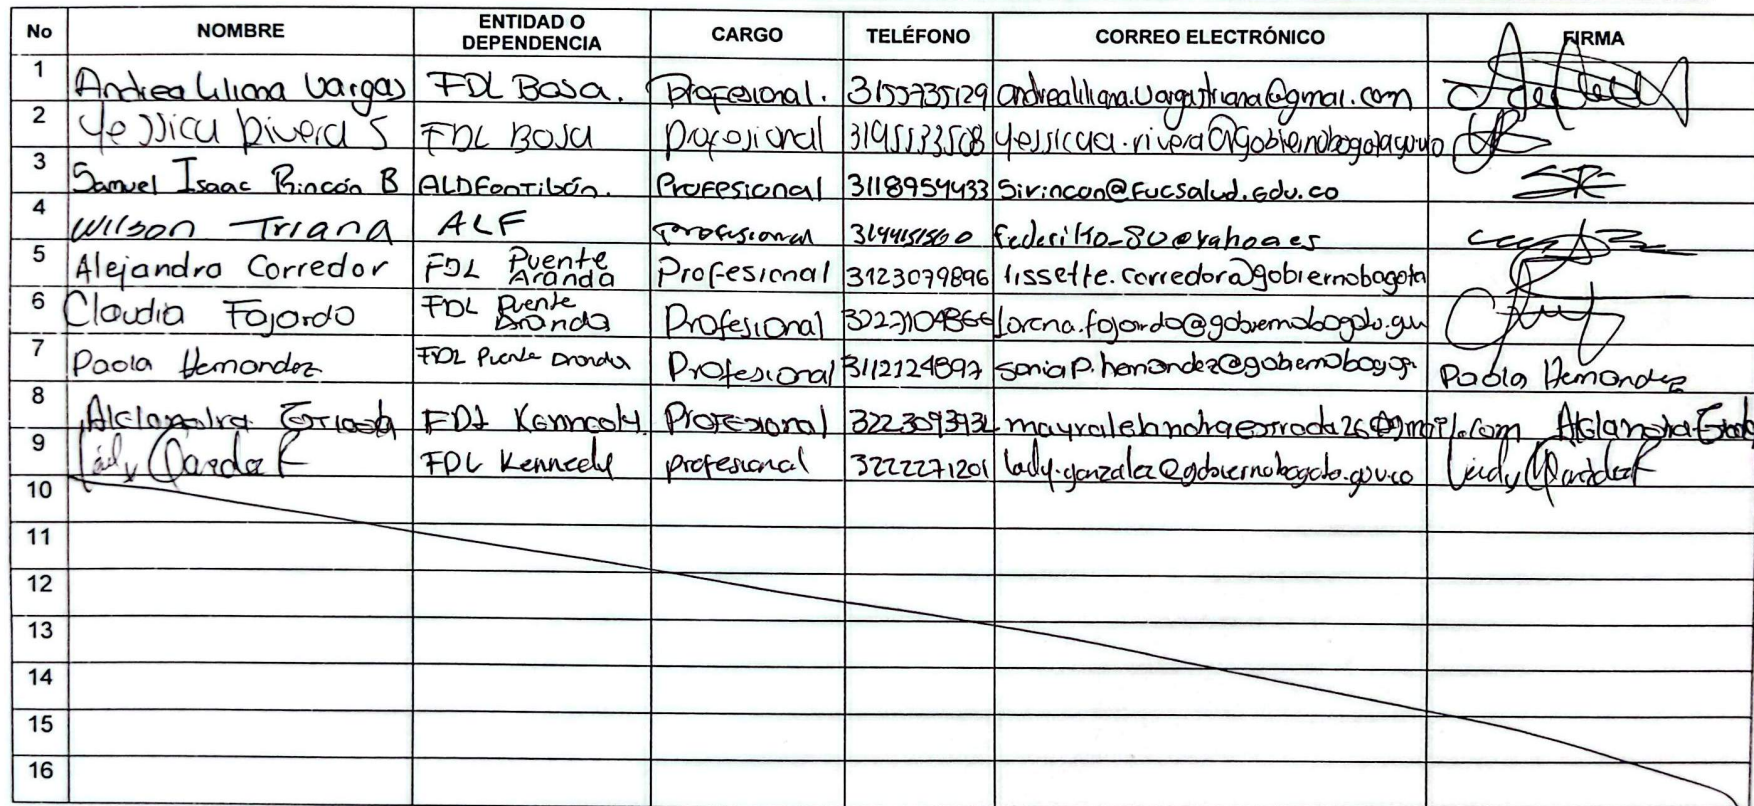 No NOMBRE ENTIDAD O DEPENDENCIA CARGO TELÉFONO CORREO ELECTRÓNICO FIRMA
1 Andrea Liliana Vargas FDL Bosa. Profesional. 3155735129 andrealiliana.vargastriana@gmai.com
2 Yessica Rivera S FDL BOSA profesional 3195533508 yessicaa.rivera@gobiernobogota.gov.co
3 Samuel Isaac Rincón B ALDFontibón. Profesional 3118954433 Sirincon@fucsalud.edu.co
4 Wilson Triana ALF Profesional federikto-80@yahoo.es
5 Alejandra Corredor FDL Puente Aranda Profesional 3123079896 lissette.corredor@gobiernobogota
6 Claudia Fajardo FDL Puente Aranda Profesional lorena.fajardo@gobiernobogota.gov
7 Paola Hernandez FDL Puente Aranda Profesional 3112124897 sonia.p.hernandez@gobiernobogota Paola Hernandez
8 Alejandra Estrada FDL Kennedy Profesional 3223093932 mayralejandraestrada26@gmail.com Alejandra Estrada
9 Leidy FDL Kennedy profesional 3222271201 lady.gonzalez@gobiernobogota.gov.co Leidy
10
11
12
13
14
15
16